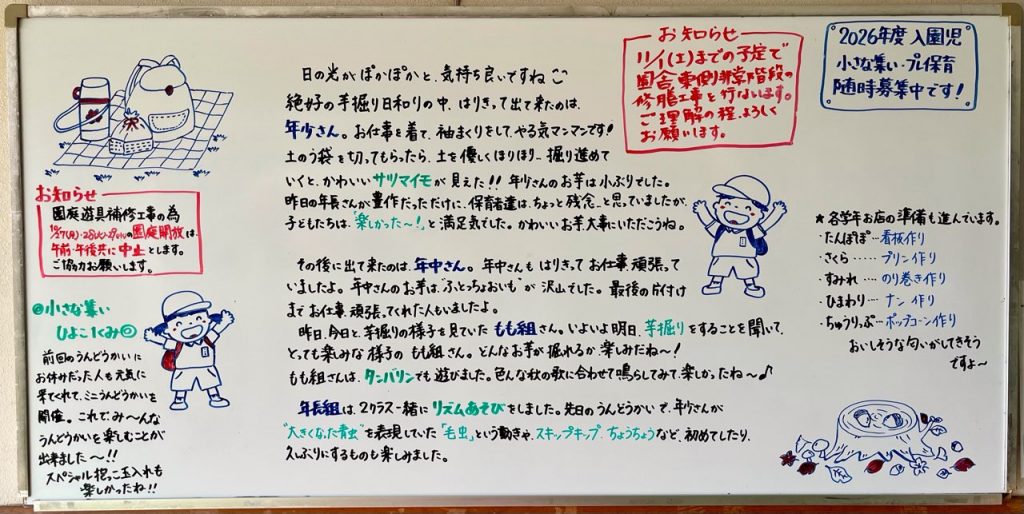 日の光が、ぽかぽかと、気持ち良いですね
絶好の芋掘り日和りの中、はりきって出て来たのは、
年少さん。お仕事を着て、袖まくりをして、やる気マンマンです!
土のう袋を切ってもらったら、土を優しくほりほり… 掘り進めて
いくと、かわいいサツマイモが見えた!! 年少さんのお芋は小ぶりでした。
昨日の年長さんが豊作だっただけに、保育者達は、ちょっと残念…と思っていましたが、
子どもたちは、"楽しかった〜!"と満足気でした。かわいいお芋、大事にいただこうね。
その後に出て来たのは、年中さん。年中さんも はりきって お仕事、頑張って
いましたよ。年中さんのお芋は"ふとっちょおいも"が 沢山でした。最後の片付け
まで お仕事、頑張ってくれた人もいましたよ。
昨日、今日と、芋掘りの様子を見ていた もも組さん。いよいよ明日、芋掘りをすることを聞いて、
とっても楽しみな様子の もも組さん。どんなお芋が 掘れるか、楽しみだね〜!
もも組さんは、タンバリンでも 遊びました。色んな秋の歌に合わせて 鳴らしてみて、楽しかったね〜♪
年長組は、2クラス一緒に リズムあそびをしました。先日の うんどうかいで、年少さんが
"大きくなった青虫"を表現していた「毛虫」という動きや、スキップキップ、ちょうちょうなど、初めてしたり、
久しぶりにするものも 楽しみました。
お知らせ
11/1(土)までの予定で
園舎東側非常階段の
修膳工事を行ないます。
ご理解の程、よろしく
お願いします。
2026年度 入園児
小さな集い・プレ保育
随時募集中です!
お知らせ
園庭遊具補修工事の為
10/27(月)・28(火)・29(水)の園庭開放は、
午前・午後共に中止とします。
ご協力お願いします。
◎小さな集い
ひよこ1くみ◎
前回のうんどうかいに
お休みだった人も元気に
来てくれて、ミニうんどうかいを
開催。これで、み〜んな
うんどうかいを楽しむことが
出来ました〜!!
スペシャル抱っこ玉入れも
楽しかったね!!
★各学年お店の準備も進んでいます。
・たんぽぽ…看板作り
・さくら……プリン作り
・すみれ……のり巻き作り
・ひまわり…ナン作り
・ちゅうりっぷ…ポップコーン作り
おいしそうな匂いがしてきそう
ですよ〜